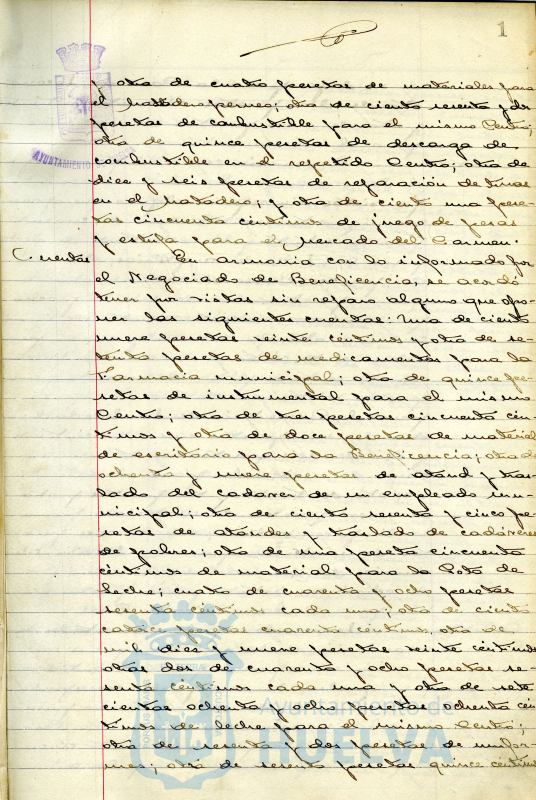 1
y otra de cuatro pesetas de materiales para
el matadero; otra de ciento sesenta y dos
pesetas de combustible para el mismo Centro;
otra de quince pesetas de descarga de
combustible en el repetido Centro; otra de
diez y seis pesetas de reparación de tinas
en el matadero; y otra de ciento una pese-
tas cincuenta céntimos de juego de pesas
y estufa para el Mercado del Carmen.
Cuentas
En armonía con lo informado por
el Negociado de Beneficencia, se acordó
tener por vistas sin reparo alguno que opo-
ner las siguientes cuentas: Una de ciento
nueve pesetas veinte céntimos y otra de se-
tenta pesetas de medicamentos para la
Farmacia municipal; otra de quince pe-
setas de instrumental para el mismo
Centro; otra de tres pesetas cincuenta cén-
timos y otra de doce pesetas de material
de escritorio para la Beneficencia; otra de
ochenta y nueve pesetas de ataud y tras-
lado del cadáver de un empleado mu-
nicipal; otra de ciento sesenta y cinco pe-
setas de ataudes y traslado de cadáveres
de pobres; otra de una peseta cincuenta
céntimos de material para la Gota de
Leche; cuatro de cuarenta y ocho pesetas
sesenta céntimos cada una; otra de ciento
catorce pesetas cuarenta céntimos, otra de
mil diez y nueve pesetas veinte céntimos
otras dos de cuarenta y ocho pesetas se-
senta céntimos cada una y otra de sete-
cientas ochenta y ocho pesetas ochenta cén-
timos de leche para el mismo Centro;
otra de sesenta y dos pesetas de unifor-
mes; otra de sesenta pesetas quince céntimos
AYUNTAMIENTO
Ayuntamiento de
HUELVA